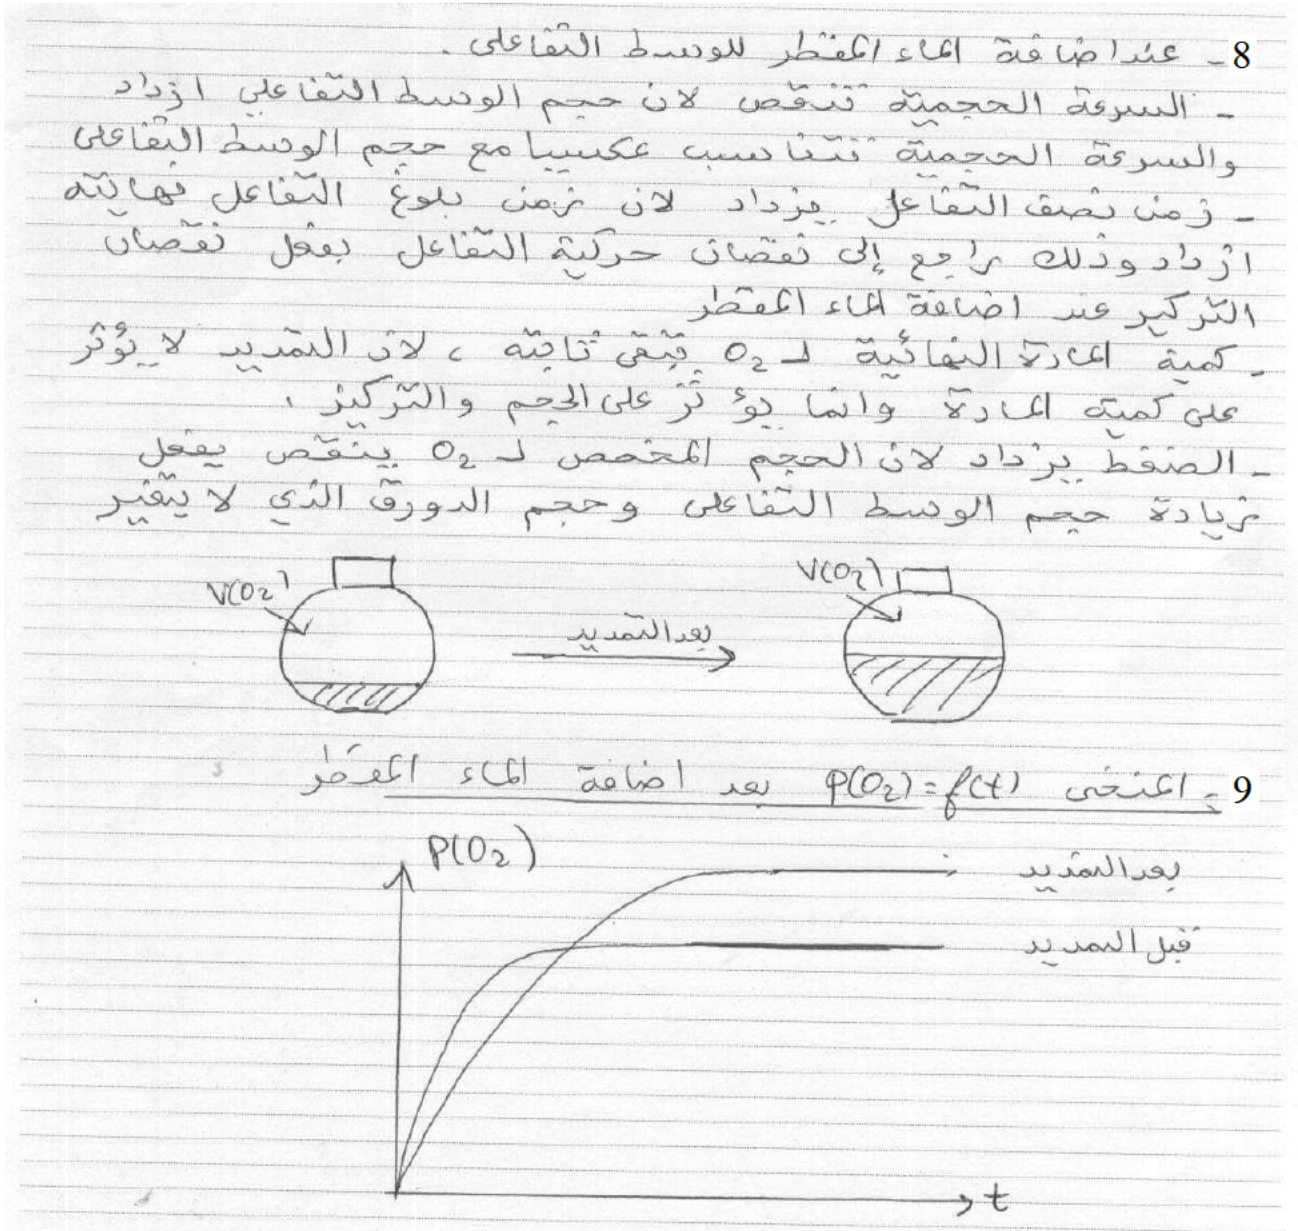 8 - عند اضافة الماء المقطر للوسط التفاعلي .
- السرعة الحجمية تنقص لان حجم الوسط التفاعلي ازداد
والسرعة الحجمية تتناسب عكسيا مع حجم الوسط التفاعلي
- زمن نصف التفاعل يزداد لان زمن بلوغ التفاعل نهايته
ازداد وذلك راجع إلى نقصان حركية التفاعل بفعل نقصان
التركيز عند اضافة الماء المقطر
- كمية المادة النهائية لـ O₂ تبقى ثابتة ، لان التمديد لا يؤثر
على كمية المادة وانما يؤثر على الحجم والتركيز .
- الضغط يزداد لان الحجم المخصص لـ O₂ ينقص بفعل
زيادة حجم الوسط التفاعلي وحجم الدورق الذي لا يتغير
V(O₂)
بعد التمديد
V(O₂)
9 - المنحنى P(O₂) = f(t) بعد اضافة الماء المقطر
P(O₂)
بعد التمديد
قبل التمديد
t